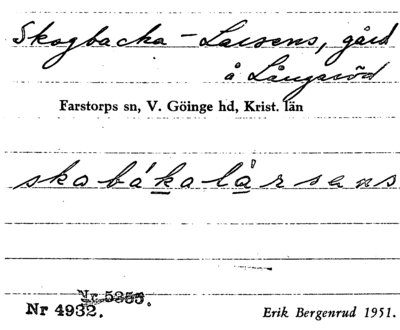 Skogbacka - Larsens, gård
å Långaröd
Farstorps sn, V. Göinge hd, Krist. län
skobákalàrsens
Nr 5355.
Nr 4932.
Erik Bergenrud 1951.